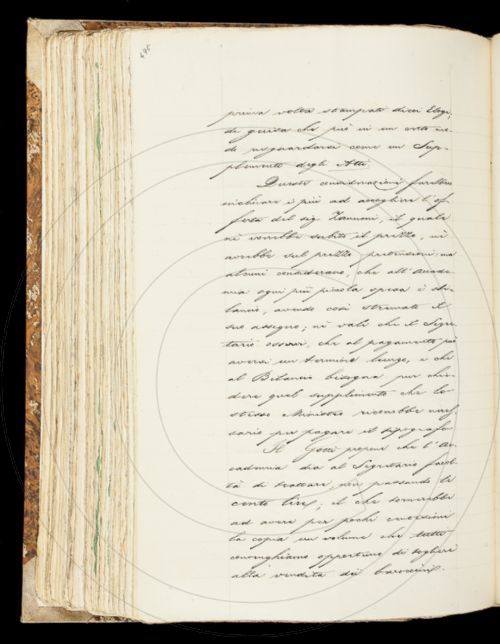 495
prima volta stampati dieci Elogi,
di guisa che può in un certo mo-
do risguardarsi come un Sup-
plemento degli Atti.
Queste considerazioni farebbero
inchinare i più ad accogliere l'of-
ferta del sig. Zannoni, il quale
nè vorrebbe subito il prezzo, nè
avrebbe sul prezzo pretensioni; ma
alcuni considerano, che all'Accade-
mia ogni più piccola spesa è sbi-
lancio, avendo così stremato il
suo assegno; nè vale che il Segre-
tario osservi, che al pagamento può
aversi un termine lungo, e che
al Bilancio bisogna pur chie-
dere quel supplemento che lo
stesso Ministro riconobbe neces-
sario per pagare il tipografo.
Il Gotti propone che l'Ac-
cademia dia al Segretario facol-
tà di trattare, non passando le
cento lire; il che tornerebbe
ad avere per pochi
la copia un volume che tutti
convenghiamo opportuno di togliere
alla vendita dei barroccini.